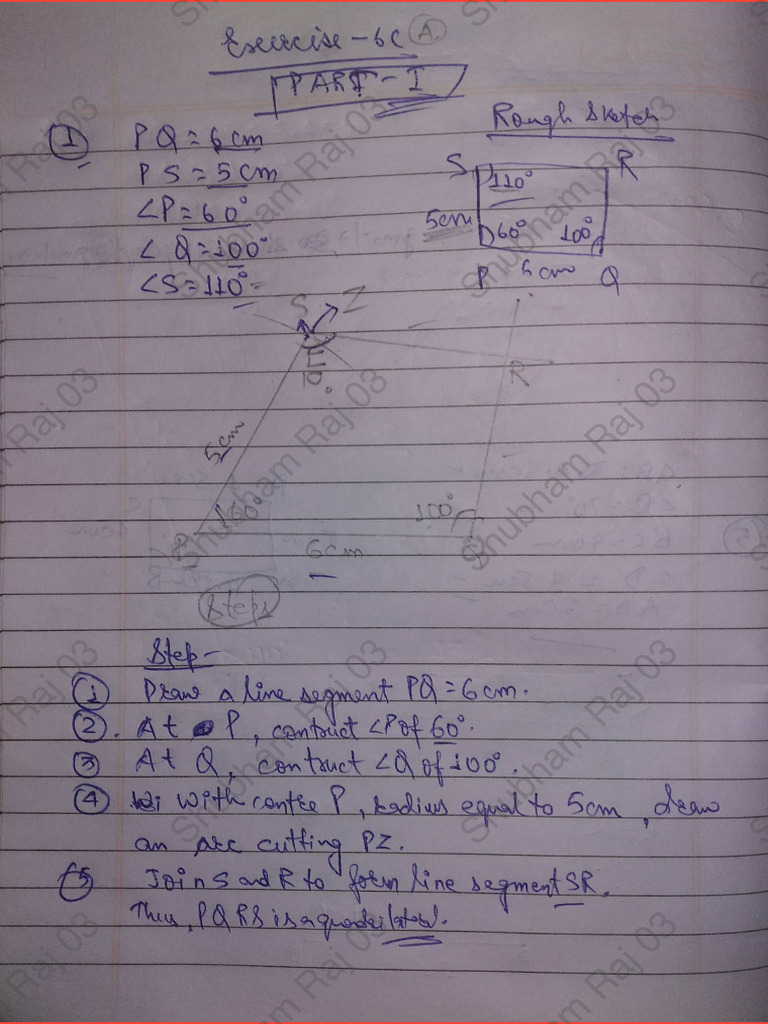 Exercise-6C A.
PART-I
① PQ = 6 cm
PS = 5 cm
∠P = 60°
∠Q = 100°
∠S = 110°
Rough Sketch
S R
110°
5cm
60° 100°
P 6cm Q
S Z
110°
R
5cm
60° 100°
P Q
6cm
Steps
Step-
① Draw a line segment PQ = 6 cm.
②. At P, contruct ∠P of 60°.
③ At Q, contruct ∠Q of 100°.
④ with centre P, radius equal to 5cm, draw
an arc cutting PZ.
⑤ Join S and R to form line segment SR.
Thus, PQRS is a quadrilateral.
Shubham Raj 03